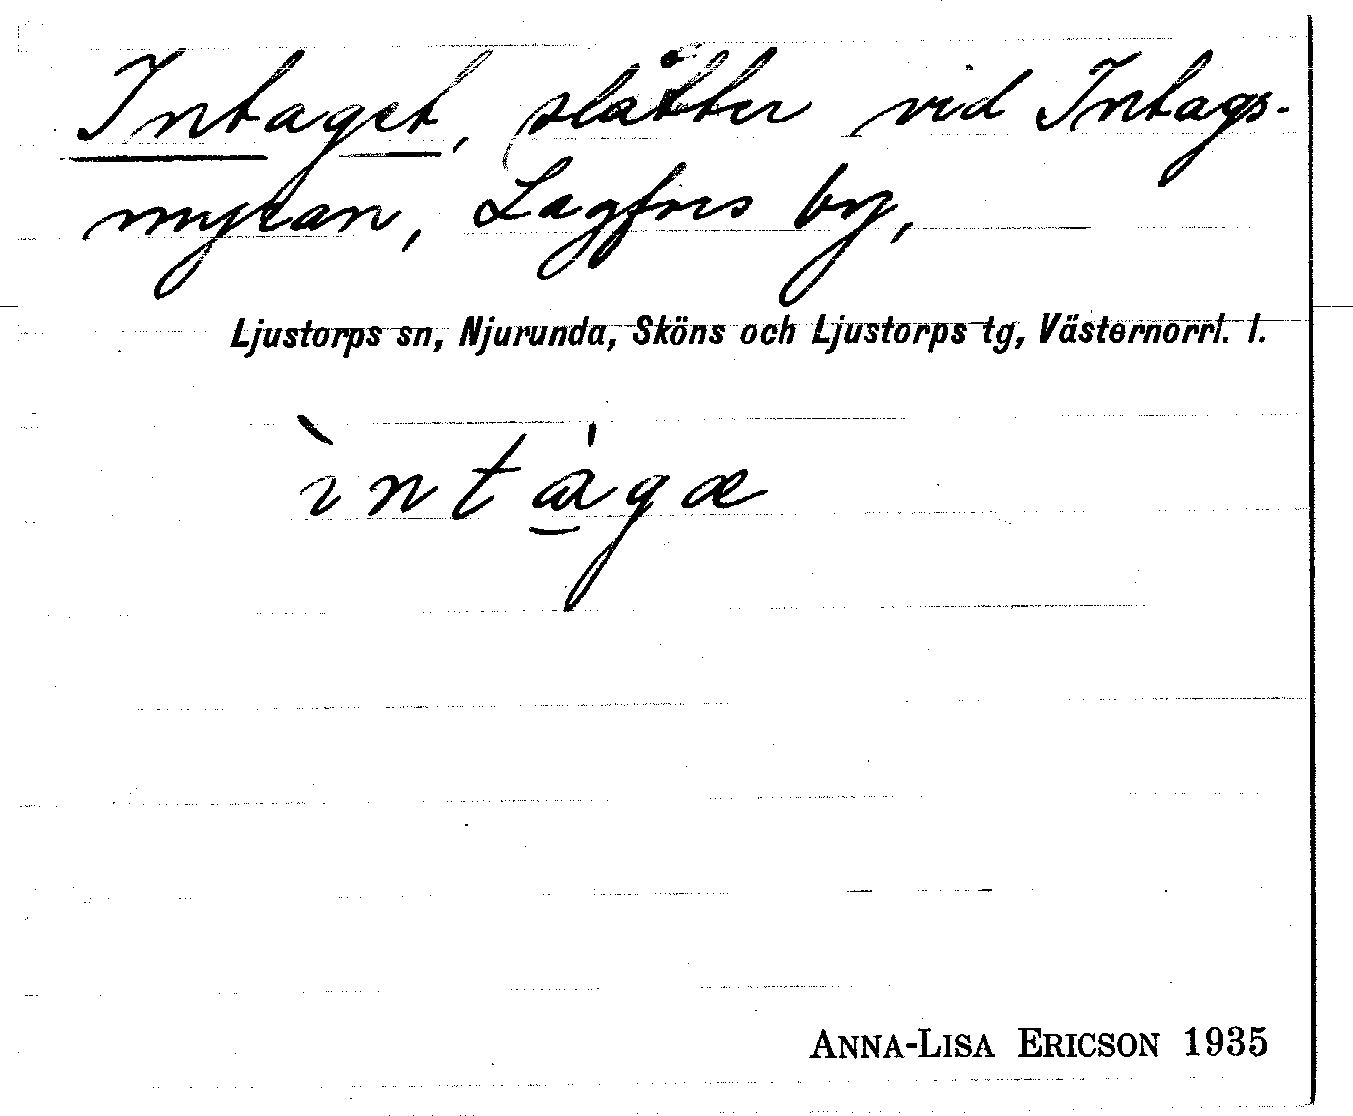 Intaget, slåtter vid Intags-
myran, Lagfors by,
Ljustorps sn, Njurunda, Sköns och Ljustorps tg, Västernorrl. l.
ìntágæ
ANNA-LISA ERICSON 1935